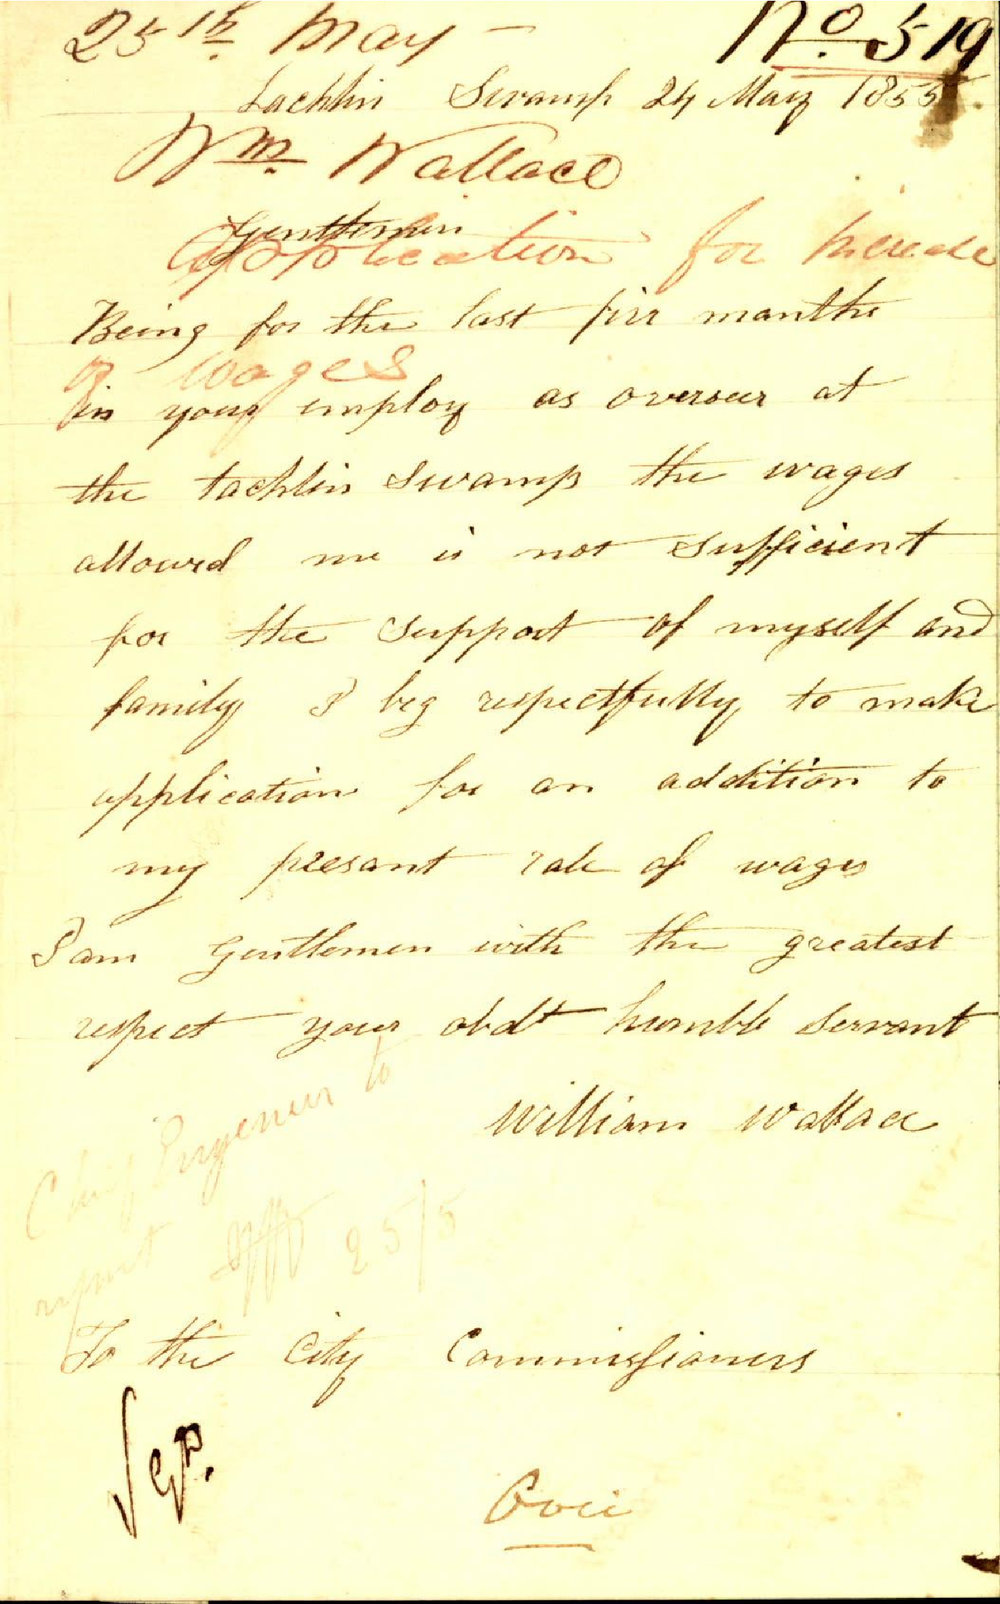 25th. May —
No. 519
Lachlin Swamp 24 May 1855.
Wm. Wallace
Gentlemen
Application for Increase
Being for the last six months
of Wages
in your employ as overseer at
the Lachlin Swamp the wages
allowed me is not sufficient
for the support of myself and
family I beg respectfully to make
application for an addition to
my presant rate of wages
I am Gentlemen with the greatest
respect your obdt humble Servant
William Wallace
Chief Engeneur to
report 25/5
To the City Commissioners